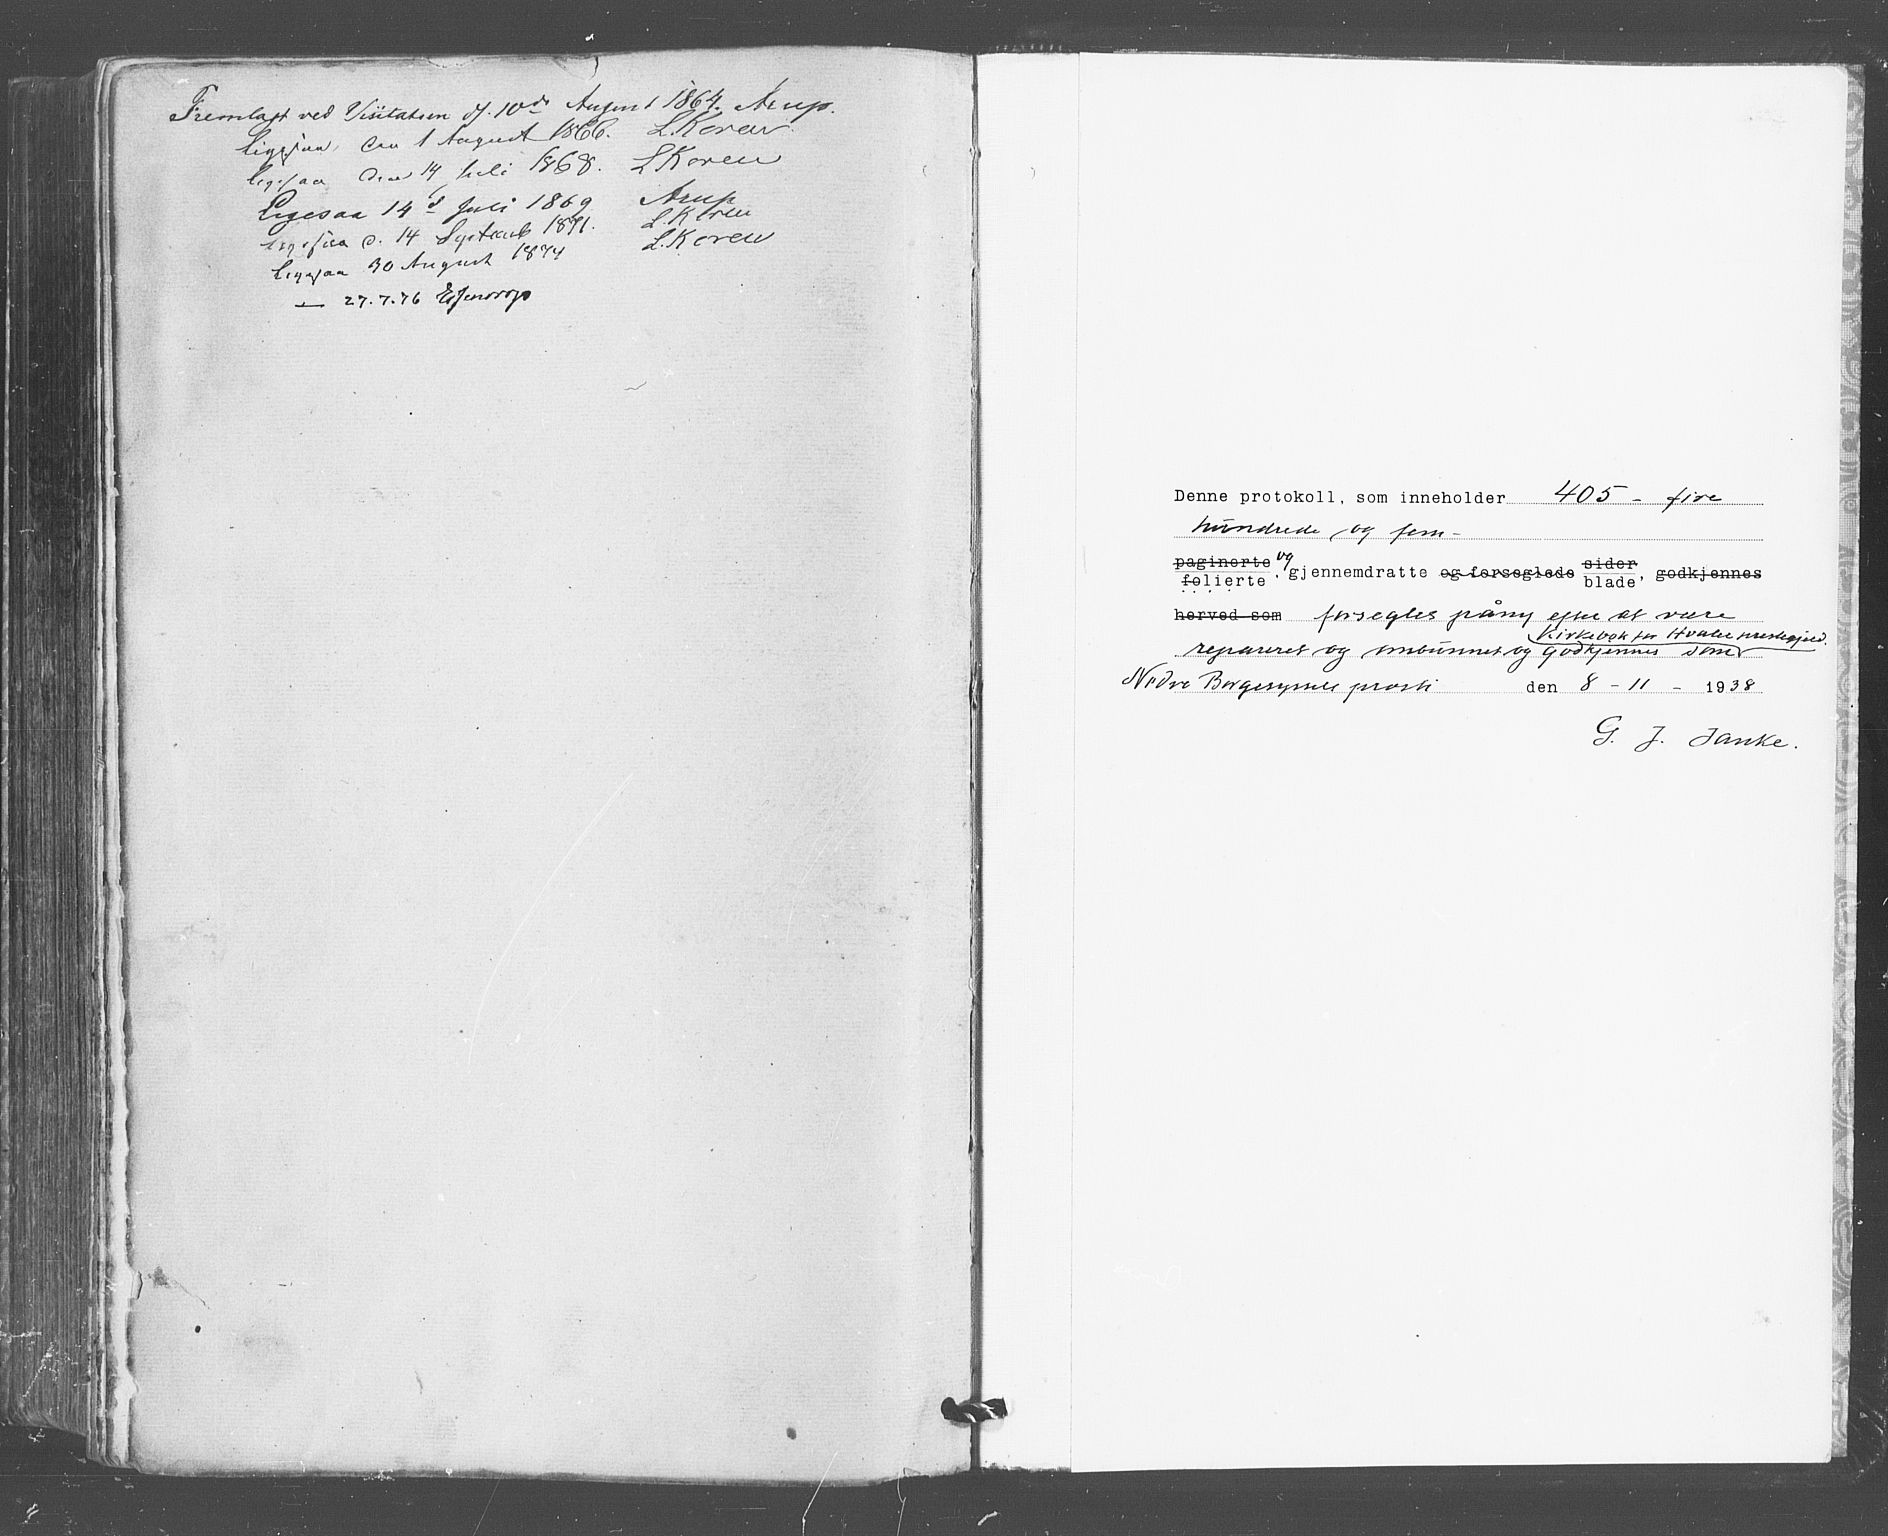 Fremlagt ved Visitatsen d. 10de August 1864. Arup.
Ligesaa den 1 August 1866. L. Koren
Ligesaa den 14 Juli 1868. L Koren
Ligesaa 14d Juli 1869 Arup
Ligesaa d. 14 Septemb 1871. L. Koren
Ligesaa 30 August 1874 L. Koren
— 27.7.76 Essendrop
Denne protokoll, som inneholder 405 - fire
hundrede og fem -
paginerte og sider
folierte, gjennemdratte og forseglede blade, godkjennes
herved som forsegles påny efter at være
Kirkebok for Hvaler prestegjeld.
reparert og ombunnet og godkjennes som
Nedre Borgesyssel prosti den 8 - 11 - 1938
G. J. Janke.